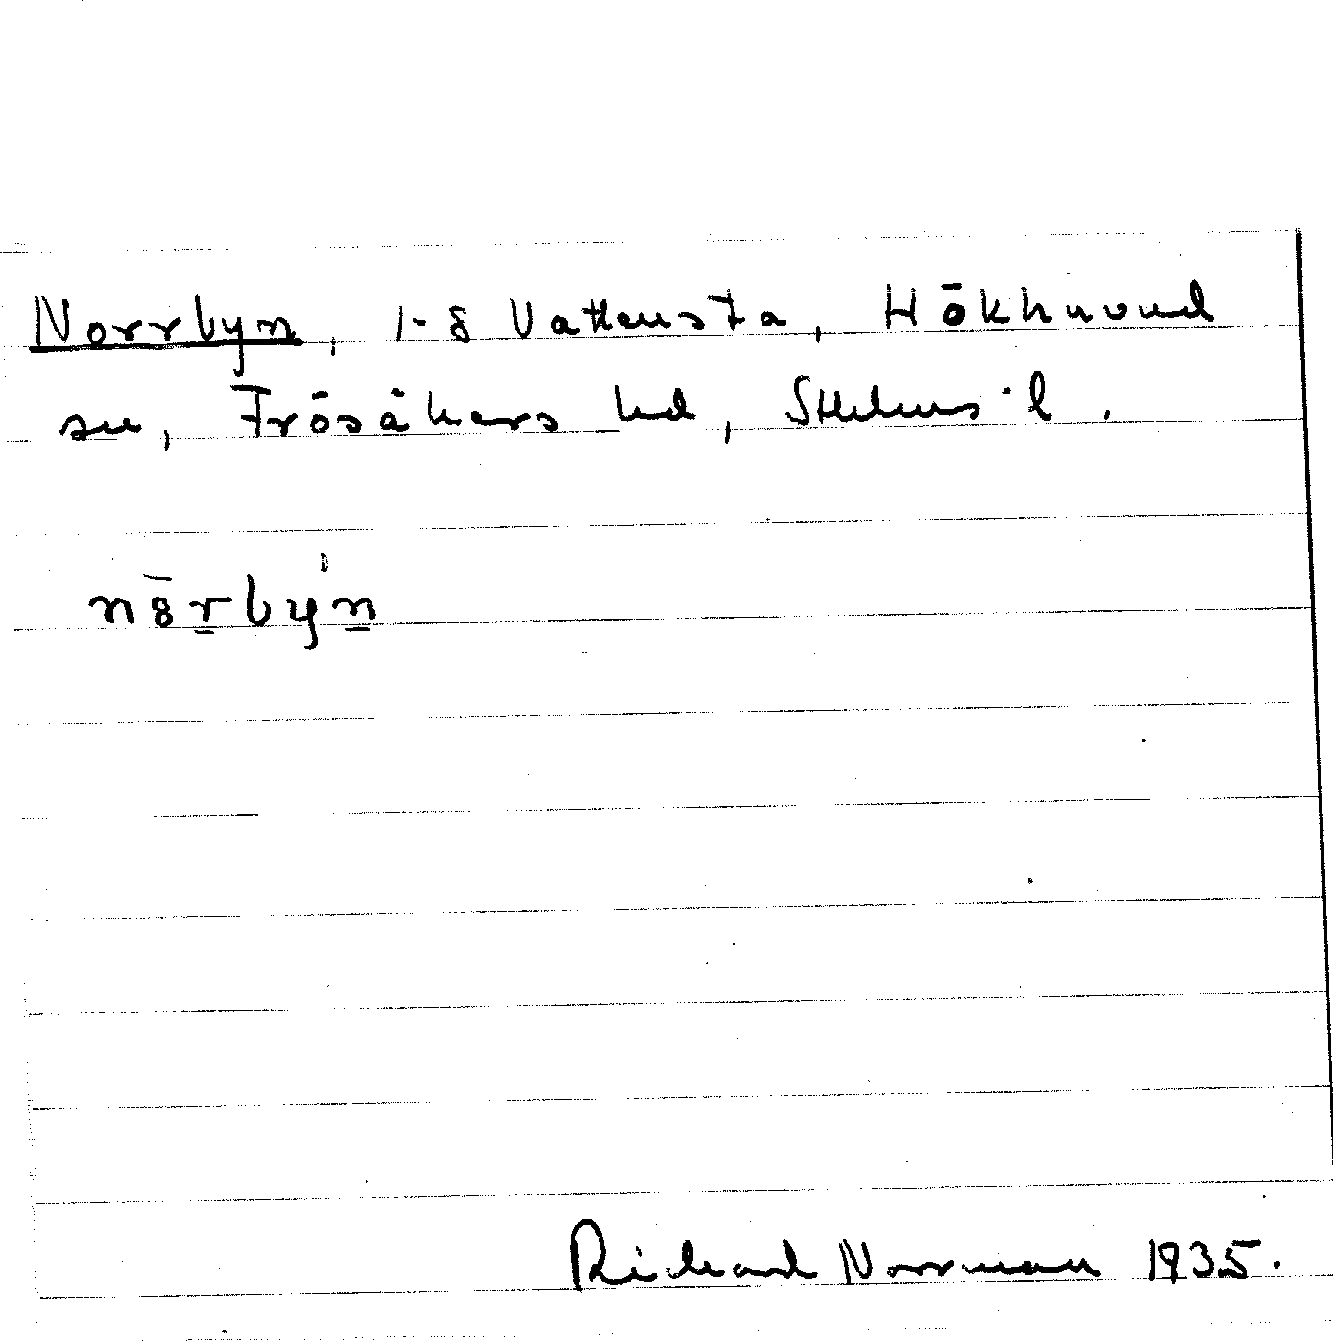 Norrbyn, 1-8 Vattensta, Hökhuvud
sn, Frösåkers hd, Sthlms l.
nörbyn
Rickard Norrman 1935.